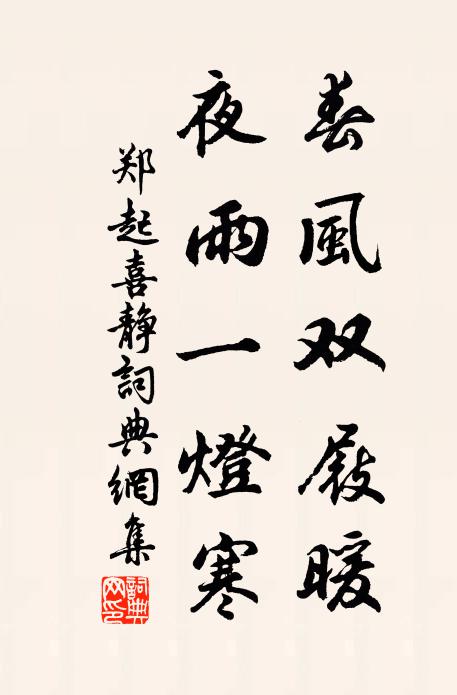 春風双屐暖
夜雨一燈寒
郑起喜靜詞典網集
詞典网印